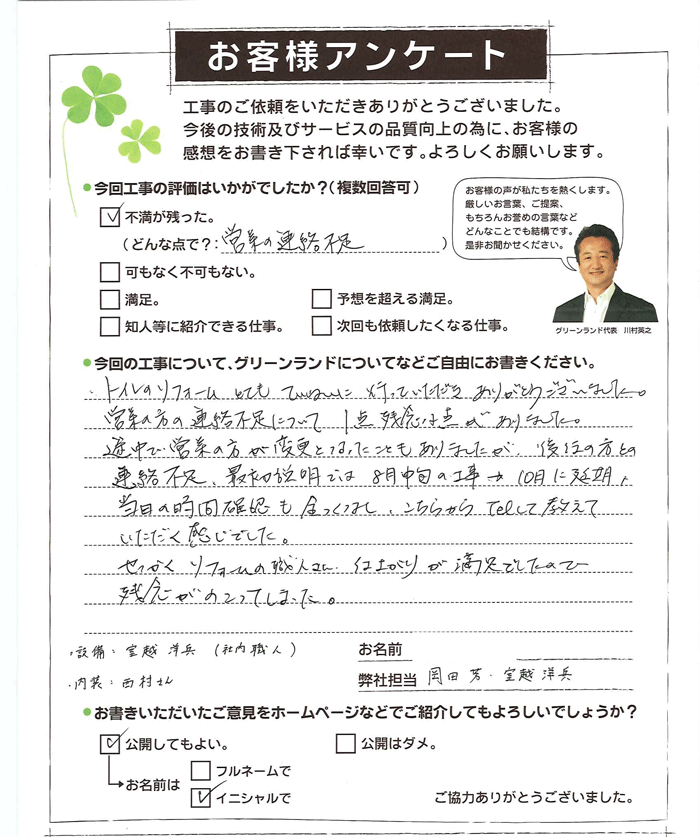 お客様アンケート
工事のご依頼をいただきありがとうございました。
今後の技術及びサービスの品質向上の為に、お客様の
感想をお書き下されば幸いです。よろしくお願いします。
●今回工事の評価はいかがでしたか?(複数回答可)
不満が残った。
(どんな点で?: 営業の連絡不足 )
可もなく不可もない。
満足。
予想を超える満足。
知人等に紹介できる仕事。
次回も依頼したくなる仕事。
お客様の声が私たちを熱くします。
厳しいお言葉、ご提案、
もちろんお誉めの言葉など
どんなことでも結構です。
是非お聞かせください。
グリーンランド代表 川村英之
●今回の工事について、グリーンランドについてなどご自由にお書きください。
・トイレのリフォーム とても ていねいに 行っていただき ありがとうございました。
営業の方の連絡不足について 1点残念な点がありました。
途中で営業の方が変更となったこともありましたが、後任の方との
連絡不足、最初説明では 8月中旬の工事→10月に延期、
当日の時間確認も全くなし、こちらからTelして教えて
いただく感じでした。
せっかくリフォームの職人さん 仕上がりが満足でしたので
残念がのこってしまった。
・設備: 室越 洋兵 (社内職人)
・内装: 西村さん
お名前
弊社担当 岡田 芳・室越洋兵
●お書きいただいたご意見をホームページなどでご紹介してもよろしいでしょうか?
公開してもよい。
公開はダメ。
お名前は
フルネームで
イニシャルで
ご協力ありがとうございました。